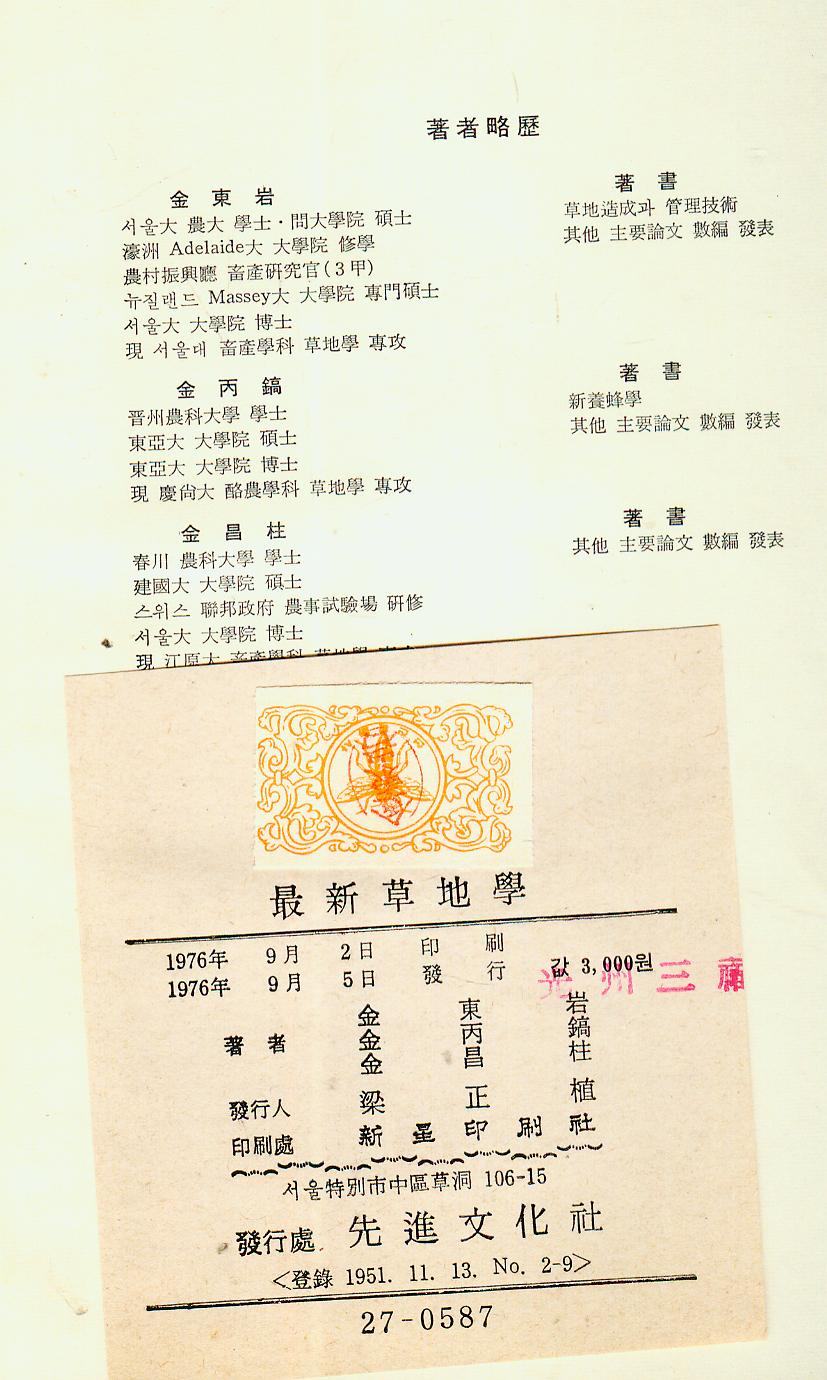 著者略歷
金東岩
서울大 農大 學士·問大學院 碩士
濠洲 Adelaide大 大學院 修學
農村振興廳 畜產硏究官(3甲)
뉴질랜드 Massey大 大學院 專門碩士
서울大 大學院 博士
現 서울대 畜產學科 草地學 專攻
著書
草地造成과 管理技術
其他 主要論文 數編 發表
金丙鎬
晋州農科大學 學士
東亞大 大學院 碩士
東亞大 大學院 博士
現 慶尙大 酪農學科 草地學 專攻
著書
新養蜂學
其他 主要論文 數編 發表
金昌柱
春川 農科大學 學士
建國大 大學院 碩士
스위스 聯邦政府 農事試驗場 硏修
서울大 大學院 博士
現 江原大 畜產學科 草地學
著書
其他 主要論文 數編 發表
最新草地學
1976年 9月 2日 印刷
1976年 9月 5日 發行
값 3,000원
光州三
著者
金東岩
金丙鎬
金昌柱
發行人 梁正植
印刷處 新星印刷社
서울特別市中區草洞 106-15
發行處 先進文化社
<登錄 1951. 11. 13. No. 2-9>
27-0587